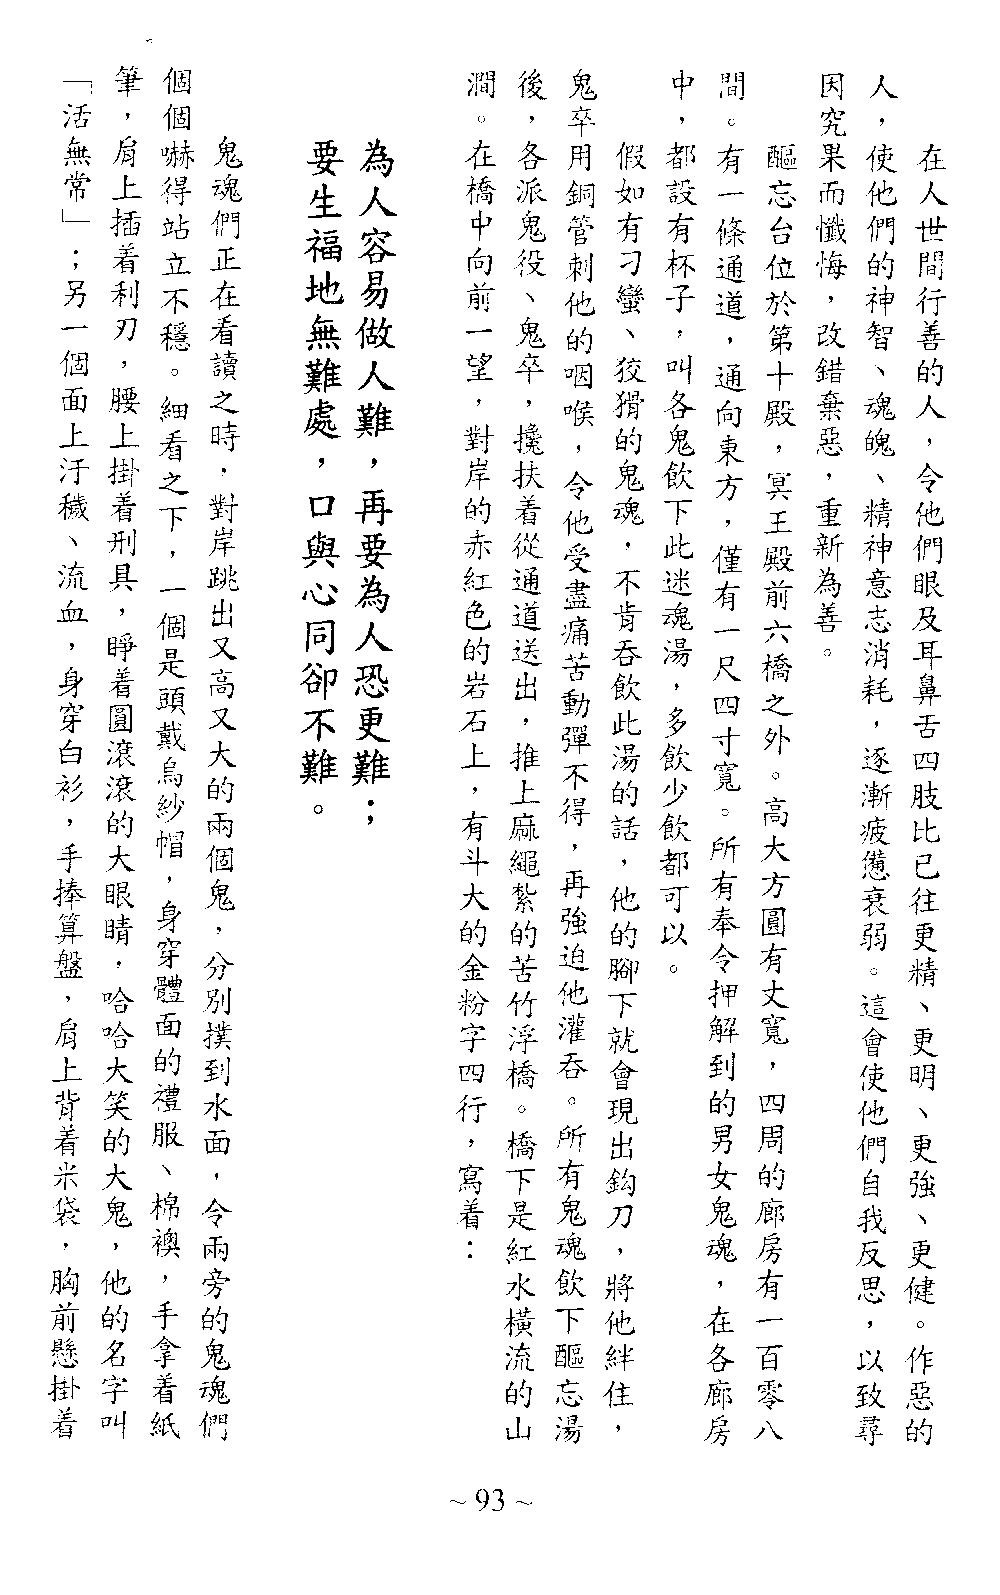 在人世間行善的人，令他們眼及耳鼻舌四肢比已往更精、更明、更強、更健。作惡的
人，使他們的神智、魂魄、精神意志消耗，逐漸疲憊衰弱。這會使他們自我反思，以致尋
因究果而懺悔，改錯棄惡，重新為善。
醧忘台位於第十殿，冥王殿前六橋之外。高大方圓有丈寬，四周的廊房有一百零八
間。有一條通道，通向東方，僅有一尺四寸寬。所有奉令押解到的男女鬼魂，在各廊房
中，都設有杯子，叫各鬼飲下此迷魂湯，多飲少飲都可以。
假如有刁蠻、狡猾的鬼魂，不肯吞飲此湯的話，他的腳下就會現出鈎刀，將他絆住，
鬼卒用銅管刺他的咽喉，令他受盡痛苦動彈不得，再強迫他灌吞。所有鬼魂飲下醧忘湯
後，各派鬼役、鬼卒，攙扶着從通道送出，推上麻繩紮的苦竹浮橋。橋下是紅水橫流的山
澗。在橋中向前一望，對岸的赤紅色的岩石上，有斗大的金粉字四行，寫着：
為人容易做人難，再要為人恐更難；
要生福地無難處，口與心同卻不難。
鬼魂們正在看讀之時，對岸跳出又高又大的兩個鬼，分別撲到水面，令兩旁的鬼魂們
個個嚇得站立不穩。細看之下，一個是頭戴烏紗帽，身穿體面的禮服、棉襖，手拿着紙
筆，肩上插着利刃，腰上掛着刑具，睜着圓滾滾的大眼睛，哈哈大笑的大鬼，他的名字叫
「活無常」；另一個面上汙穢、流血，身穿白衫，手捧算盤，肩上背着米袋，胸前懸掛着
~ 93 ~